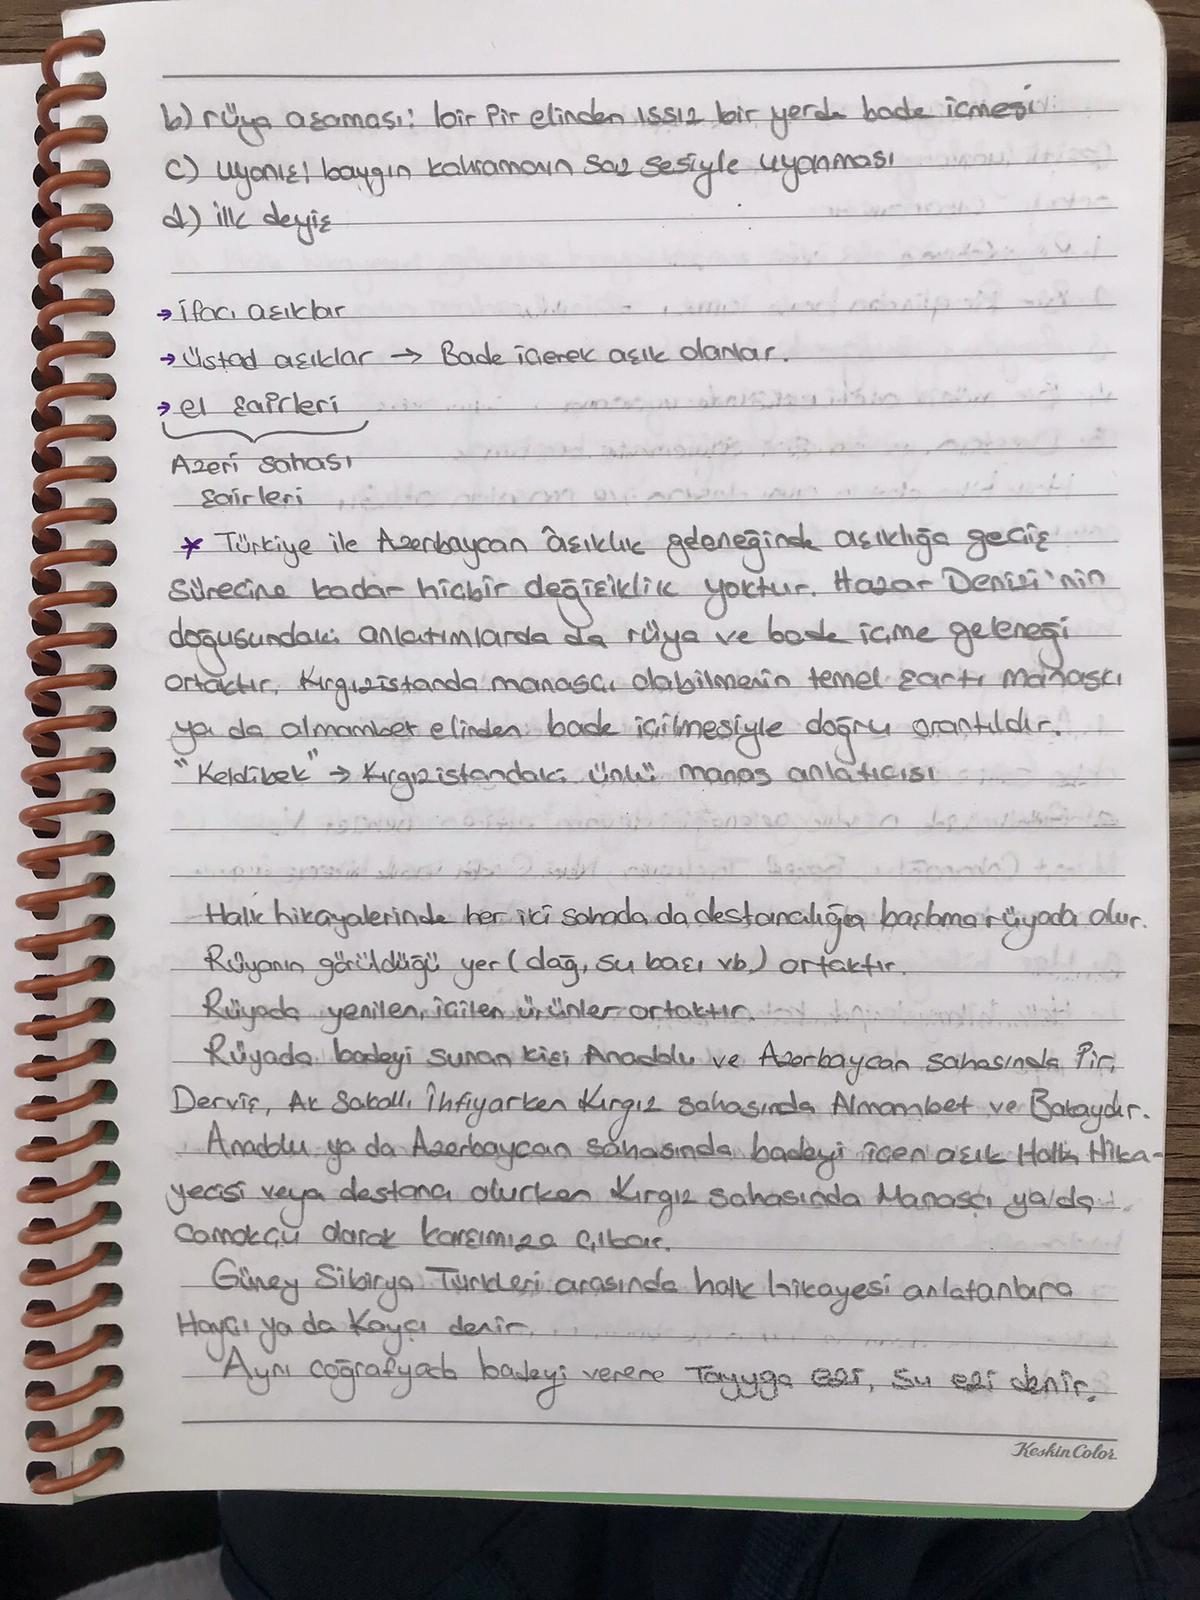 b) rüya aşaması: bir Pir elinden ıssız bir yerde bade içmesi
c) uyanış, baygın kahramanın saz sesiyle uyanması
d) ilk deyiş
→ ifacı aşıklar
→ üstad aşıklar → Bade içerek aşık olanlar.
→ el şairleri
Azeri sahası
şairleri
* Türkiye ile Azerbaycan âşıklık geleneğinde aşıklığa geçiş
sürecine kadar hiçbir değişiklik yoktur. Hazar Denizi'nin
doğusundaki anlatımlarda da rüya ve bade içme geleneği
ortaktır. Kırgızistanda manasçı olabilmenin temel şartı manasçı
ya da almambet elinden bade içilmesiyle doğru orantılıdır.
"Keldibek" → Kırgızistandaki ünlü manas anlatıcısı
Halk hikayalerinde her iki sahada da destancılığa başlama rüyada olur.
Rüyanın görüldüğü yer (dağ, su başı vb.) ortaktır.
Rüyada yenilen, içilen ürünler ortaktır.
Rüyada badeyi sunan kişi Anadolu ve Azerbaycan sahasında Pir,
Derviş, Ak Sakallı İhtiyarken Kırgız sahasında Almambet ve Bakaydır.
Anadolu ya da Azerbaycan sahasında badeyi içen aşık Halk Hika-
yecisi veya destancı olurken Kırgız sahasında Manasçı ya da
Comokçu olarak karşımıza çıkar.
Güney Sibirya Türkleri arasında halk hikayesi anlatanlara
Hayçı ya da Kayçı denir.
Aynı coğrafyada badeyi verene Tayyga ezi, su ezi denir.
KeskinColor